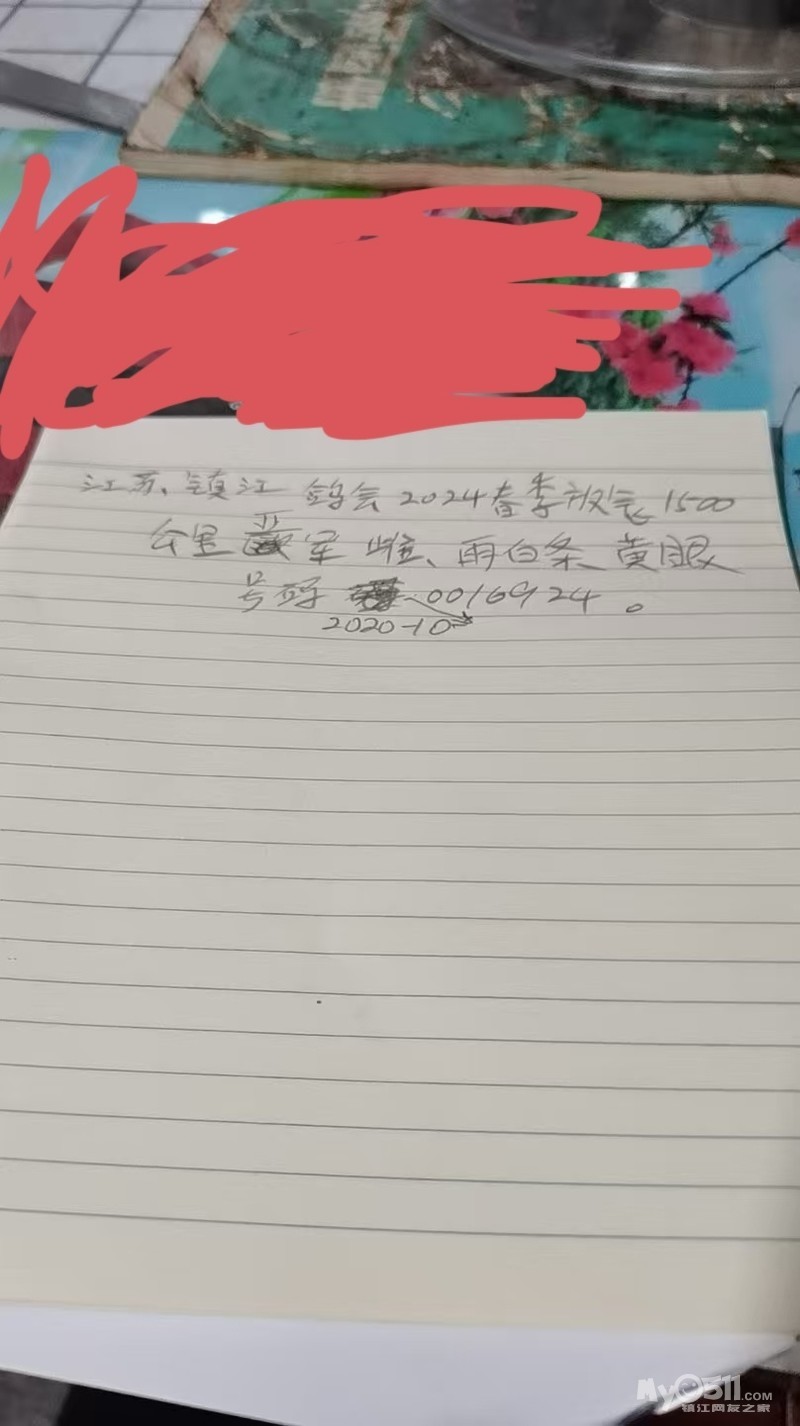 江苏、镇江 鸽会 2024春季放飞1500
公里亚军 雌、雨白条 黄眼
号码 0016924。
2020-10
My0511.COM
镇江网友之家